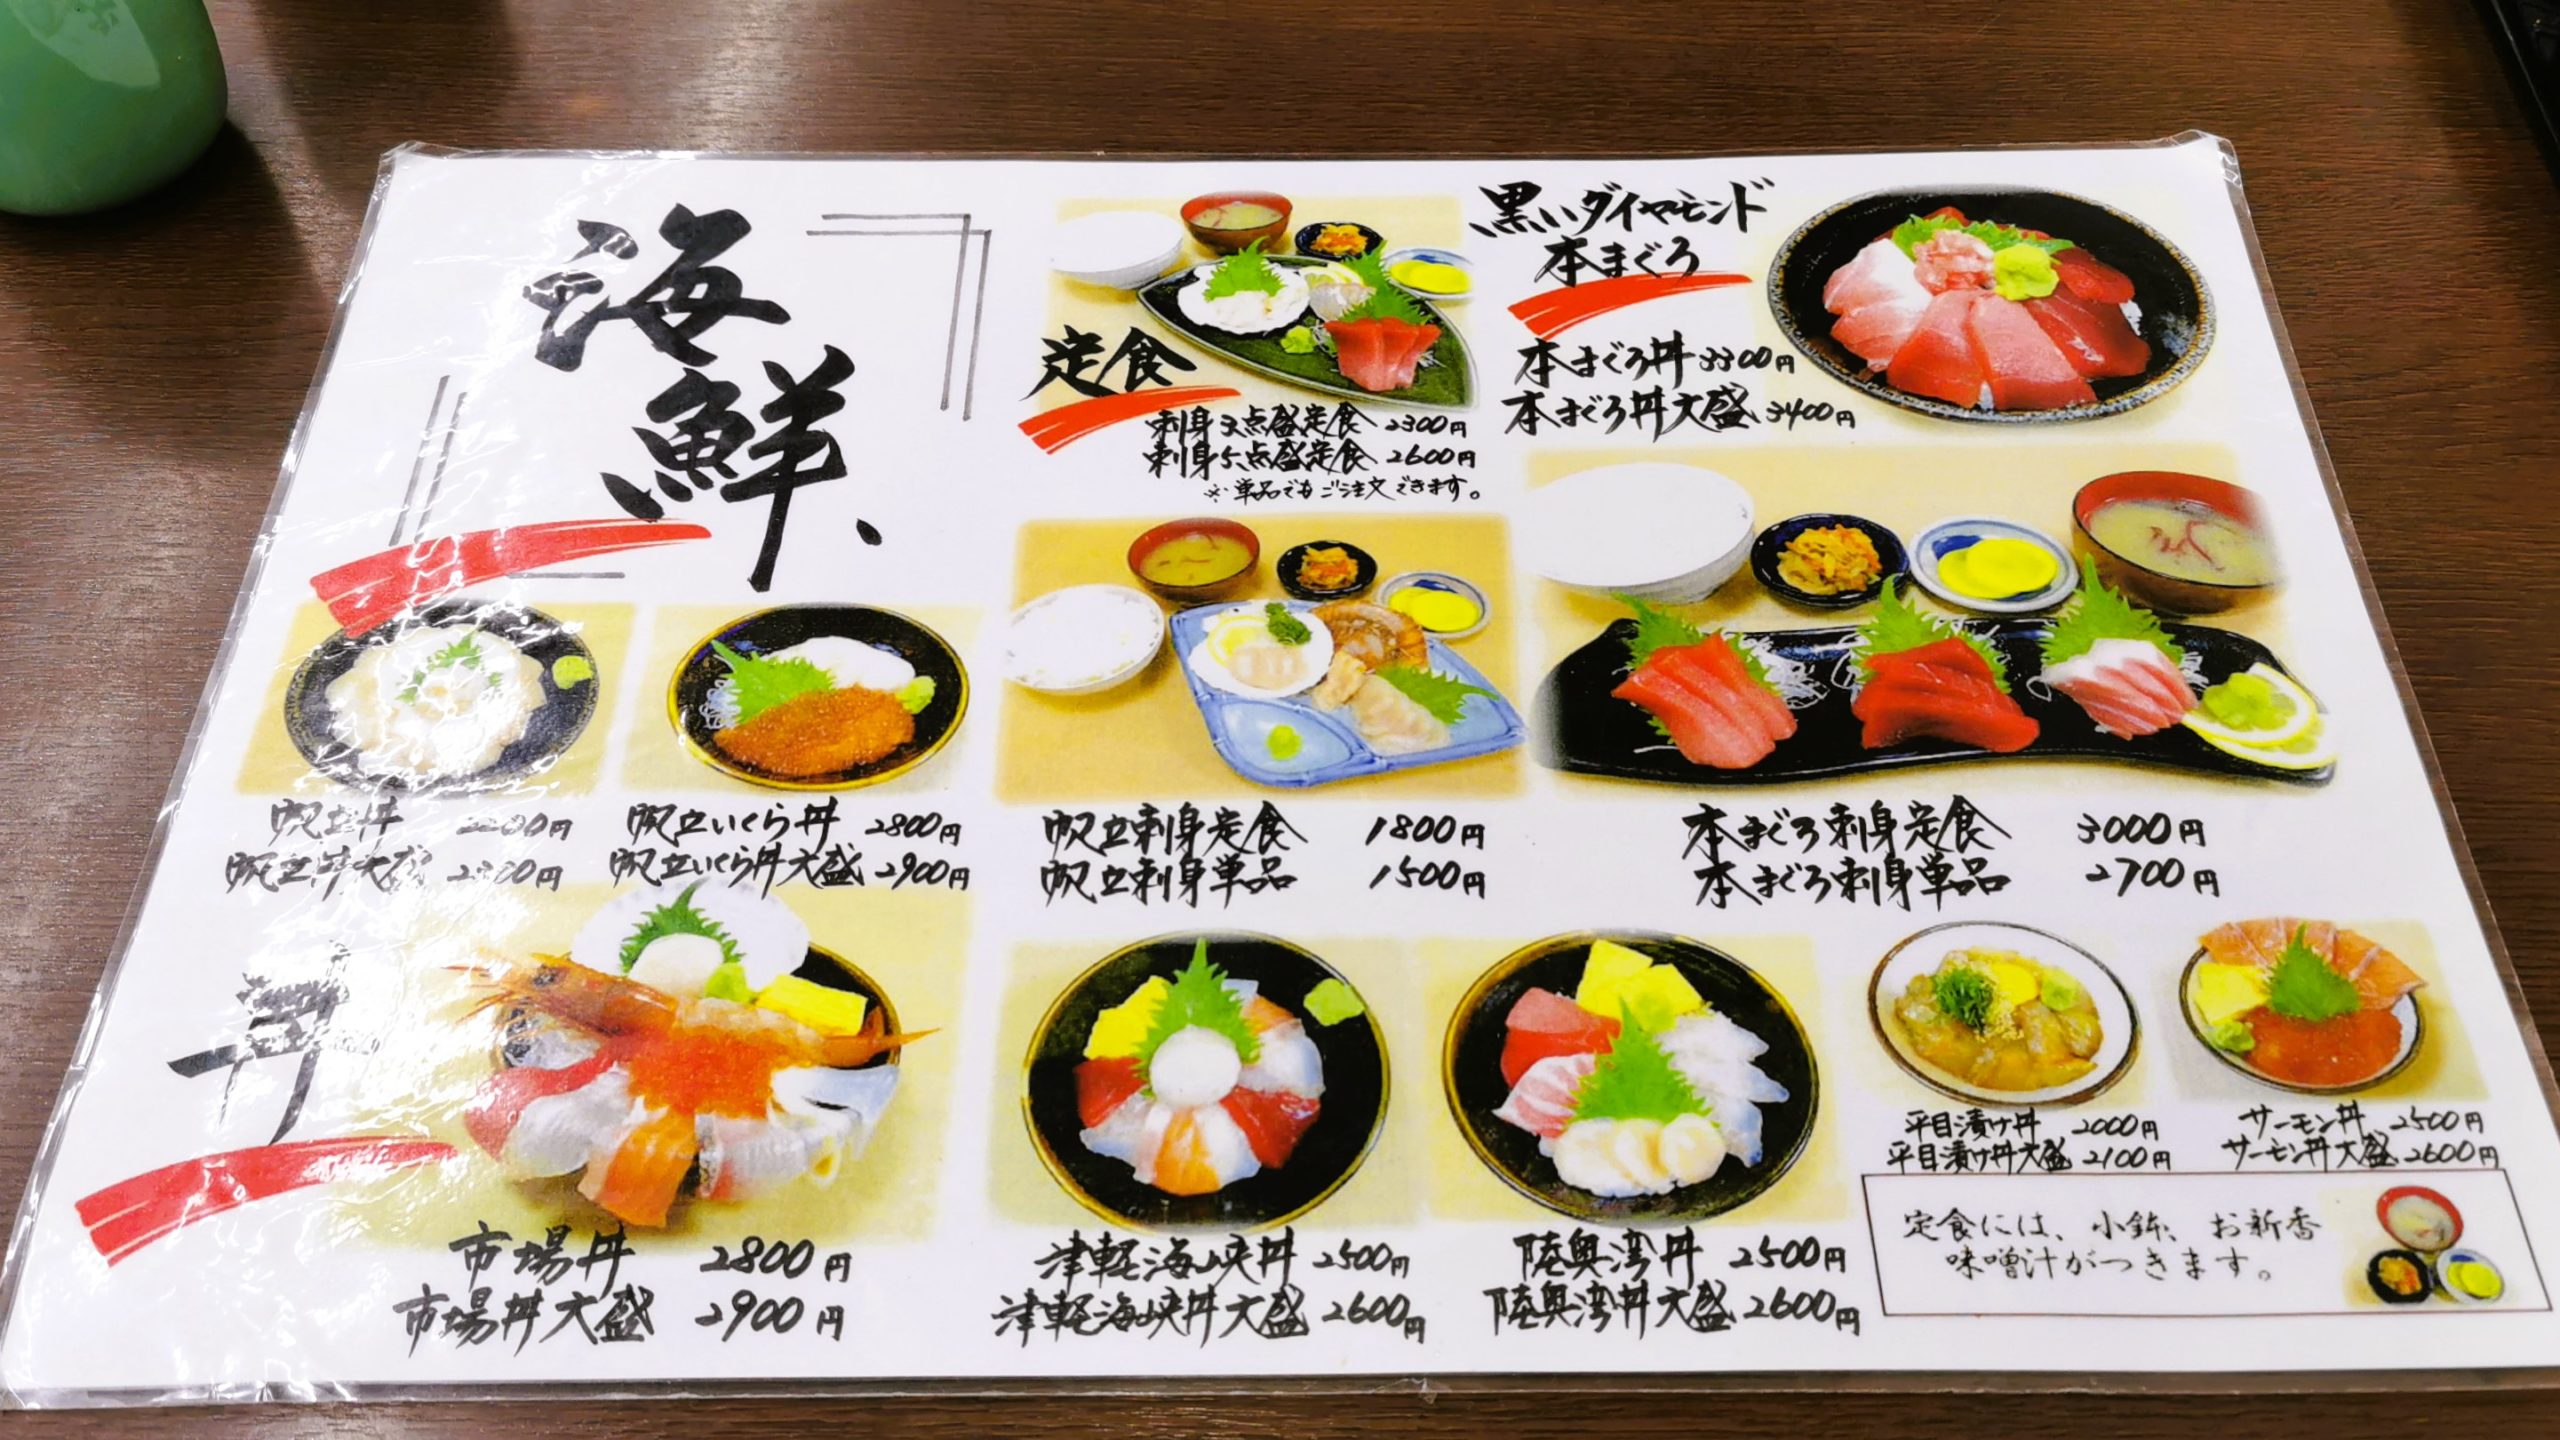 海鮮、
丼
定食
刺身3点盛定食 2300円
刺身5点盛定食 2600円
※単品でもご注文できます。
黒いダイヤモンド
本まぐろ
本まぐろ丼 3300円
本まぐろ丼大盛 3400円
帆立丼 2200円
帆立丼大盛 2300円
帆立いくら丼 2800円
帆立いくら丼大盛 2900円
帆立刺身定食 1800円
帆立刺身単品 1500円
本まぐろ刺身定食 3000円
本まぐろ刺身単品 2700円
市場丼 2800円
市場丼大盛 2900円
津軽海峡丼 2500円
津軽海峡丼大盛 2600円
陸奥湾丼 2500円
陸奥湾丼大盛 2600円
平目漬け丼 2000円
平目漬け丼大盛 2100円
サーモン丼 2500円
サーモン丼大盛 2600円
定食には、小鉢、お新香
味噌汁がつきます。